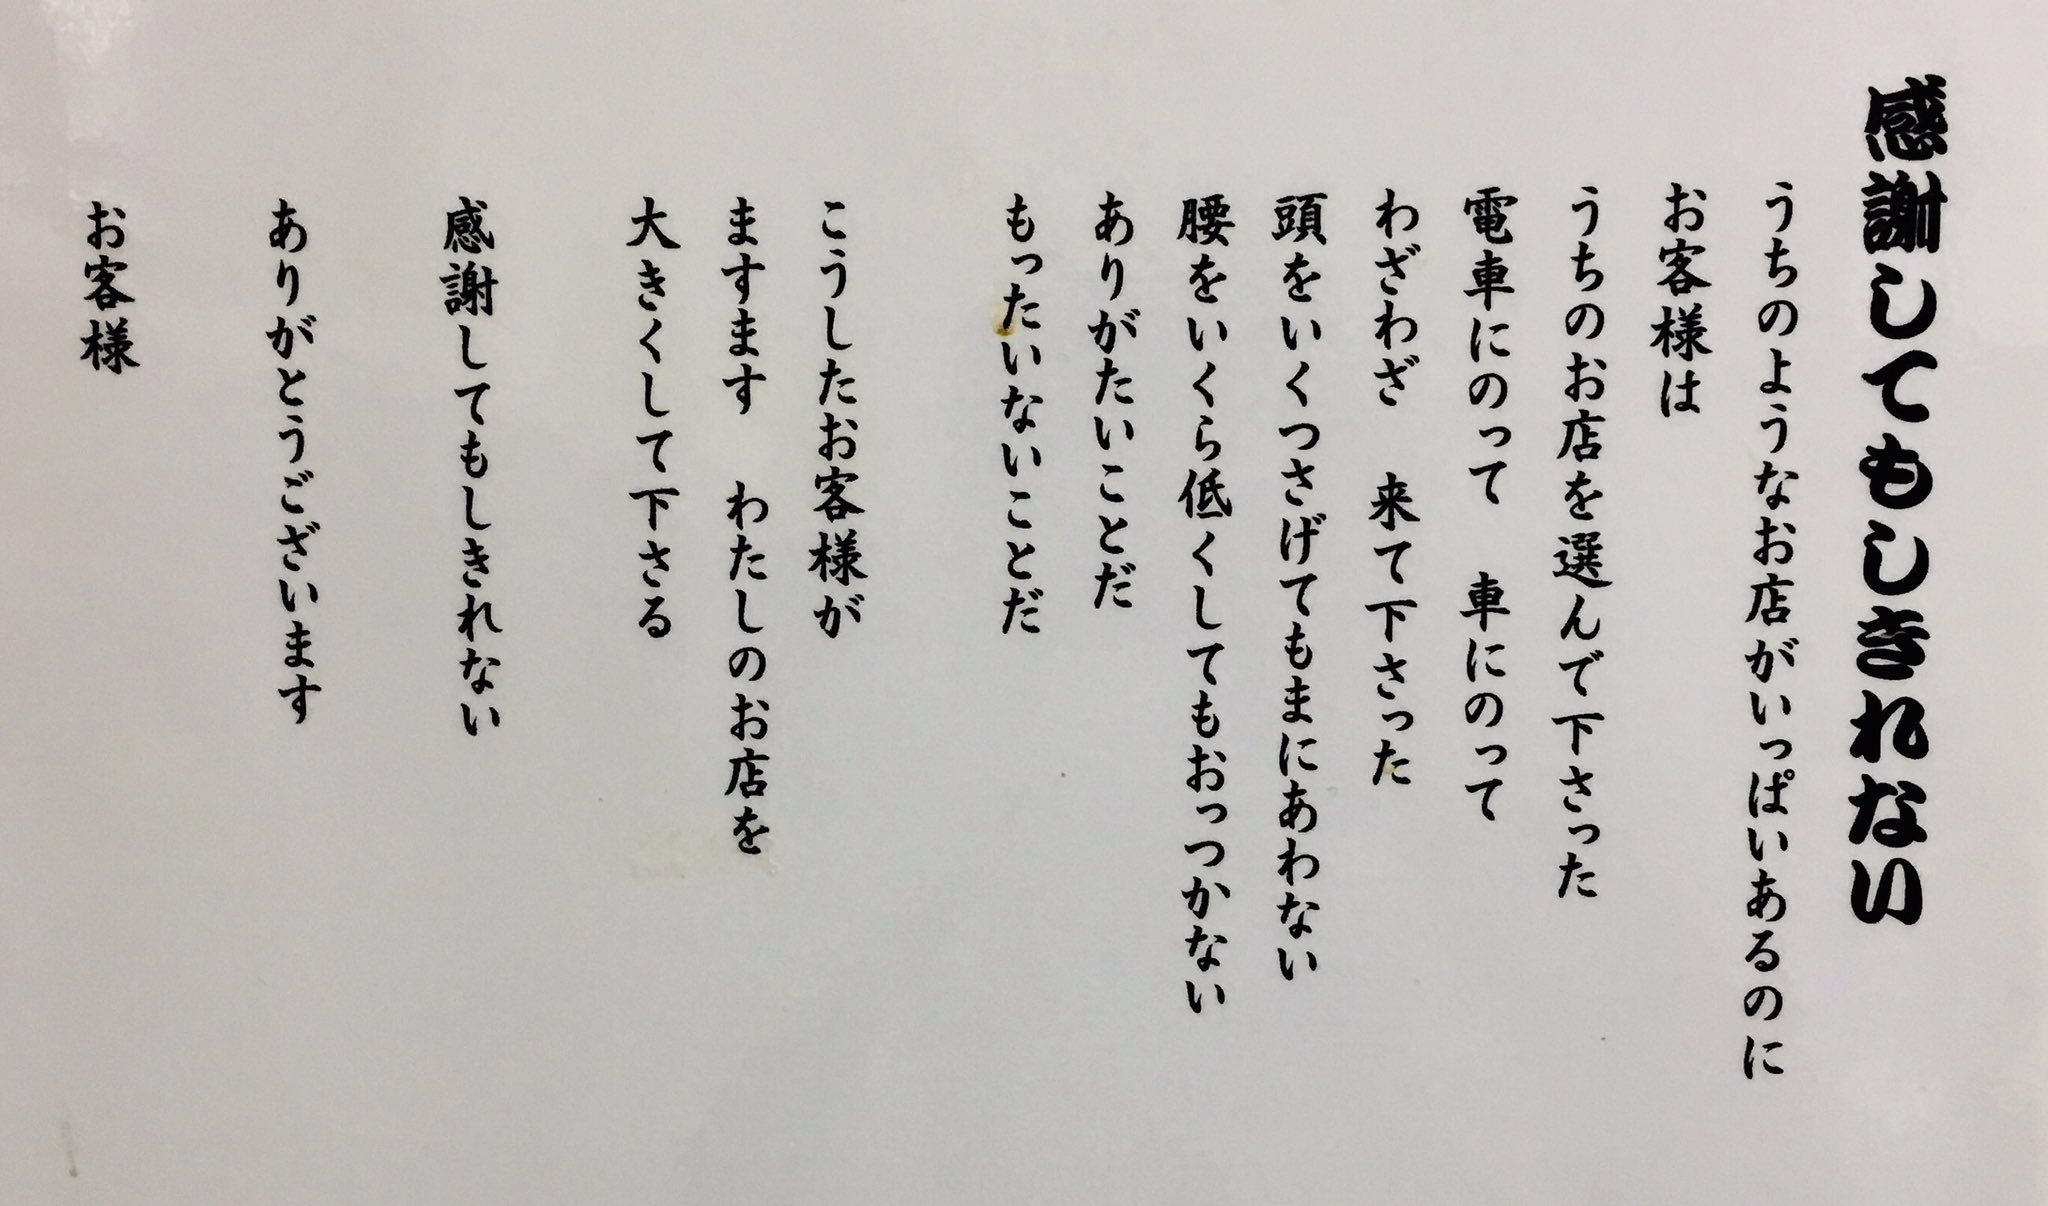 感謝してもしきれない
うちのようなお店がいっぱいあるのに
お客様は
うちのお店を選んで下さった
電車にのって　車にのって
わざわざ　来て下さった
頭をいくつさげてもまにあわない
腰をいくら低くしてもおっつかない
ありがたいことだ
もったいないことだ
こうしたお客様が
ますます　わたしのお店を
大きくして下さる
感謝してもしきれない
ありがとうございます
お客様